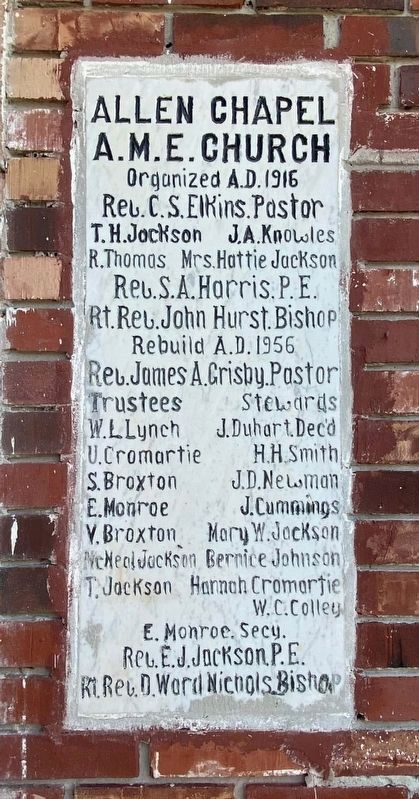 ALLEN CHAPEL
A.M.E. CHURCH
Organized A.D. 1916
Rev. C.S. Elkins. Pastor
T.H. Jackson J.A. Knowles
R. Thomas Mrs. Hattie Jackson
Rev. S.A. Harris. P.E.
Rt. Rev. John Hurst. Bishop
Rebuild A.D. 1956
Rev. James A. Grisby. Pastor
Trustees Stewards
W.L. Lynch J. Duhart. Dec'd
U. Cromartie H.H. Smith
S. Broxton J.D. Newman
E. Monroe J. Cummings
V. Broxton Mary W. Jackson
McNeal Jackson Bernice Johnson
T. Jackson Hannah Cromartie
W.C. Colley
E. Monroe. Secy.
Rev. E.J. Jackson. P.E.
Rt. Rev. D. Ward Nichols. Bishop